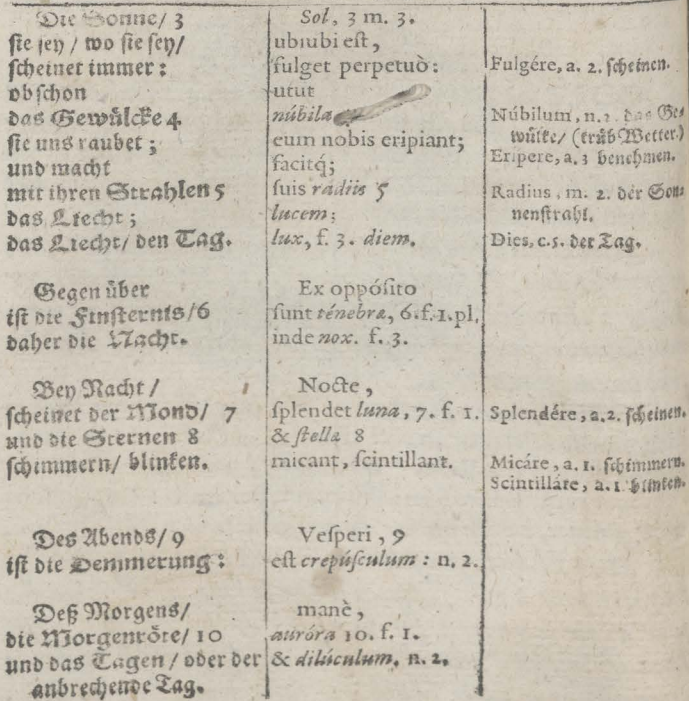 Die Sonne/ 3
sie sey / wo sie sey/
scheinet immer:
obschon
das Gewülcke 4
sie uns raubet;
und macht
mit ihren Strahlen 5
das Liecht;
das Liecht/ den Tag.
Gegen über
ist die Finsternis/6
daher die Nacht.
Bey Nacht /
scheinet der Mond/ 7
und die Sternen 8
schimmern/ blinken.
Des Abends/ 9
ist die Demmerung:
Deß Morgens/
die Morgenröte/ 10
und das Tagen / oder der
anbrechende Tag.
Sol, 3 m. 3.
ubiubi eſt,
fulget perpetuò:
utut
núbila
eum nobis eripiant;
facitq́;
ſuis radiis 5
lucem;
lux, f. 3. diem.
Ex oppóſito
ſunt ténebræ, 6. f. 1. pl.
inde nox. f. 3.
Nocte,
ſplendet luna, 7. f. 1.
& ſtellæ 8
micant, ſcintillant.
Veſperi, 9
eſt crepúſculum: n. 2.
manè,
auróra 10. f. 1.
& dilúculum. n. 2.
Fulgére, a. 2. scheinen.
Núbilum, n. 2. das Ge⸗
wülke/ (trüb Wetter.)
Eripere, a. 3 benehmen.
Radius, m. 2. der Son⸗
nenstrahl.
Dies, c. 5. der Tag.
Splendére, a. 2. scheinen.
Micáre, a. 1. schimmern.
Scintilláre, a. 1. blinken.